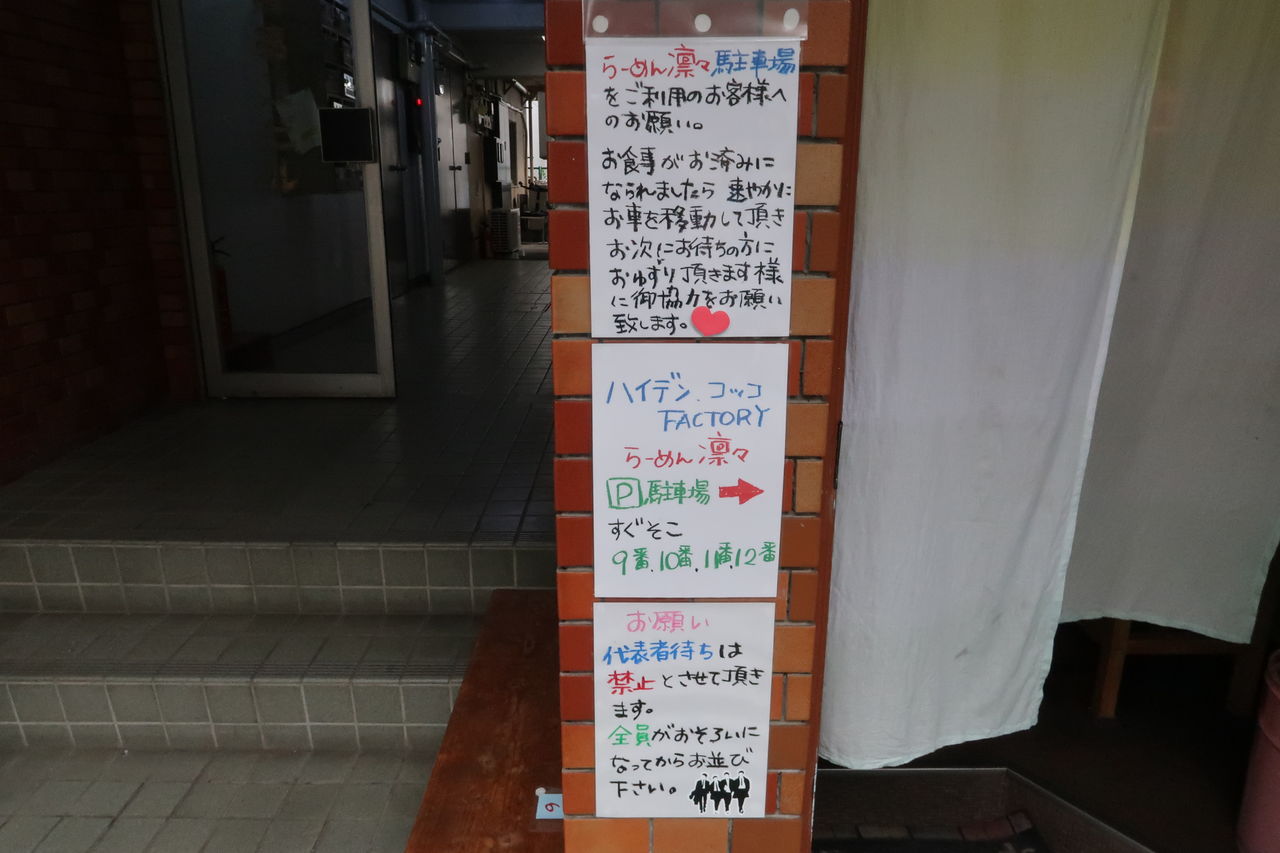 らーめん凛々駐車場
をご利用のお客様へ
のお願い。
お食事がお済みに
なられましたら 速やかに
お車を移動して頂き
お次にお待ちの方に
おゆずり頂きます様
に御協力をお願い
致します。
ハイデン.コッコ
FACTORY
らーめん凛々
P 駐車場
すぐそこ
9番.10番.11番.12番
お願い
代表者待ちは
禁止とさせて頂き
ます。
全員がおそろいに
なってからお並び
下さい。